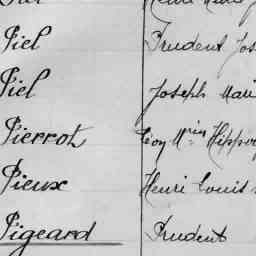 Piel Prudent Jos
Piel Joseph Mari
Pierrot Léon Mrie Hippol
Pieux Henri Louis
Pigeard Prudent